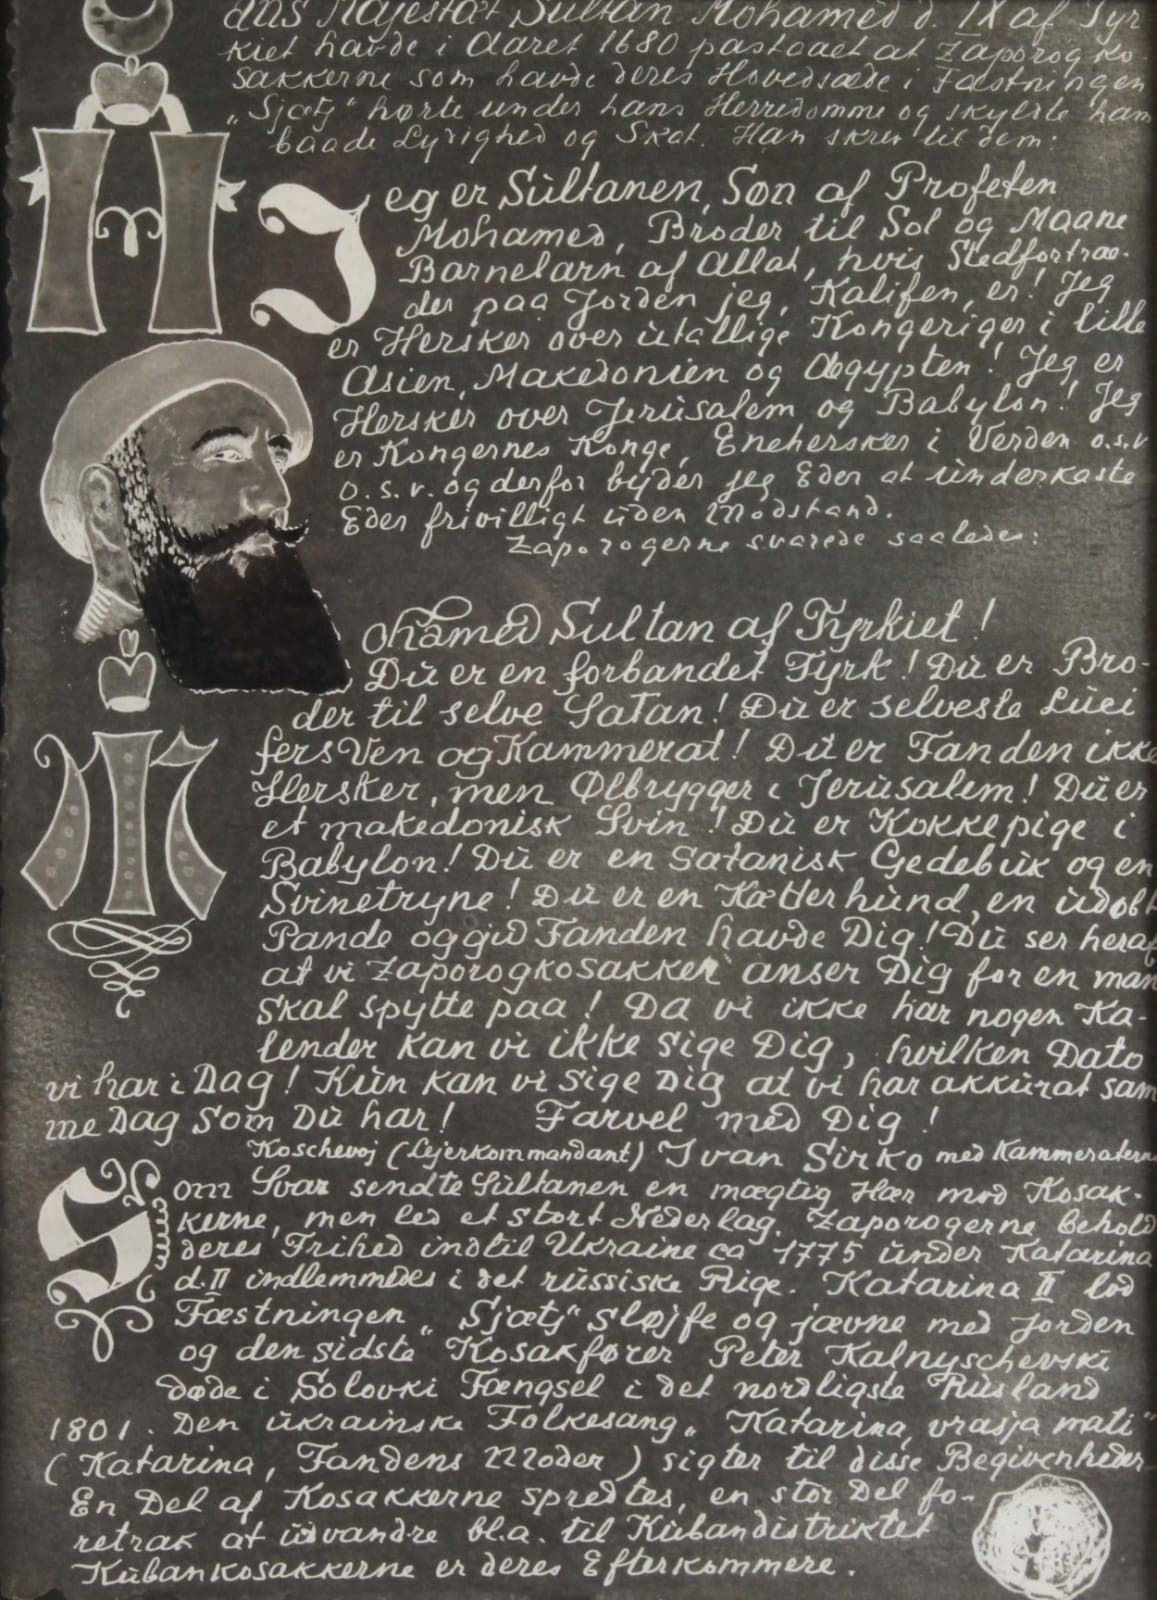 Hans Majestæt Sultan Mohamed d. IX af Tyr-
kiet havde i Aaret 1680 paastaaet at Zaporogko
sakkerne som havde deres Hovedsæde i Fæstningen
„Sjætj" hørte under hans Herredømme og skyldte ham
baade Lydighed og Skat. Han skrev til dem:
Jeg er Sültanen, Søn af Profeten
Mohamed, Broder til Sol og Maane
Barnebarn af Allah, hvis Stedfortræ-
der paa Jorden jeg, Kalifen, er! Jeg
er Hersker over ütallige Kongeriger i lille
Asien, Makedonien og Ægypten! Jeg er
Hersker over Jerüsalem og Babylon! Jeg
er Kongernes Konge, Enehersker i Verden o.s.v
o.s.v. og derfor byder jeg Eder at ünderkaste
Eder frivilligt üden Modstand.
Zaporogerne svarede saaledes:
Mohamed Sültan af Tyrkiet!
Dü er en forbandet Tyrk! Dü er Bro-
der til selve Satan! Dü er selveste Lüci
fers Ven og Kammerat! Dü er Fanden ikke
Hersker, men Ølbrygger i Jerüsalem! Dü er
et makedonisk Svin! Dü er Kokkepige i
Babylon! Dü er en Satanisk Gedebük og en
Svinetryne! Dü er en Kætterhünd, en üdøbt
Pande og gid Fanden havde Dig! Dü ser heraf
at vi Zaporogkosakker anser Dig for en man
Skal spytte paa! Da vi ikke har nogen Ka-
lender kan vi ikke sige Dig, hvilken Dato
vi har i Dag! Kün kan vi sige Dig at vi har akkürat sam
me Dag som Dü har! Farvel med Dig!
Koschevoj (Lejerkommandant) Ivan Sirko med Kammeraterne
Som Svar sendte Sültanen en mægtig Hær mod Kosak-
kerne, men led et stort Nederlag. Zaporogerne behold
deres Frihed indtil Ukraine ca 1775 ünder Katarina
d. II indlemmedes i det rüssiske Rige. Katarina II lod
Fæstningen „Sjætj" sløjfe og jævne med Jorden
og den sidste Kosakfører Peter Kalnyschevski
døde i Solovki Fængsel i det nordligste Rüsland
1801. Den ükrainske Folkesang „Katarina, vrasja mati"
(Katarina, Fandens Moder) sigter til disse Begivenheder
En Del af Kosakkerne spredtes, en stor Del fo-
retrak at üdvandre bl.a. til Kübandistriktet
Kübankosakkerne er deres Efterkommere.